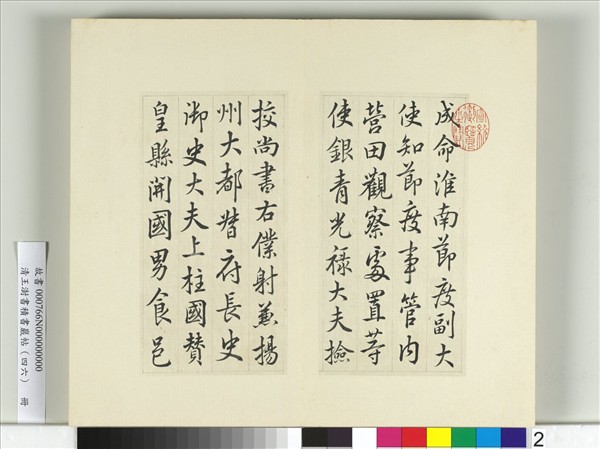 成命淮南節度副大
使知節度事管內
營田觀察處置等
使銀青光祿大夫撿
挍尚書右僕射兼揚
州大都督府長史
御史大夫上柱國贊
皇縣開國男食邑
故書000766N000000000
清王澍書積書巖帖（四六） 冊
2